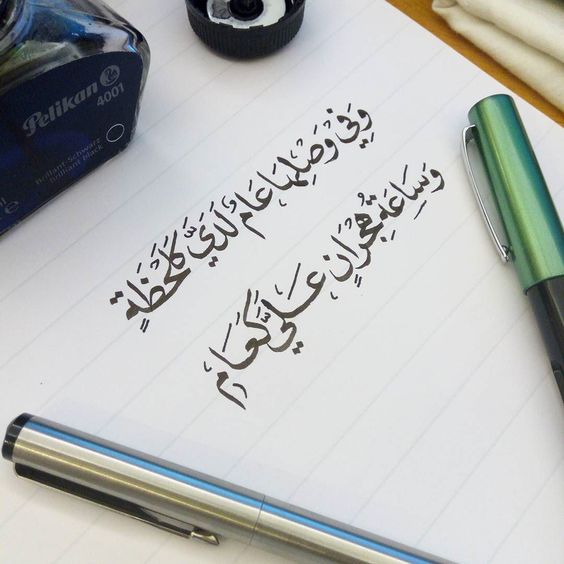 Pelikan
4001
Brillant-Schwarz
brilliant black
وَفِي وَصْلِهَا عَامٌ لَدَيَّ كَلَحْظَةٍ
وَسَاعَةِ هُجْرَانٍ عَلَيَّ كَعَامِ